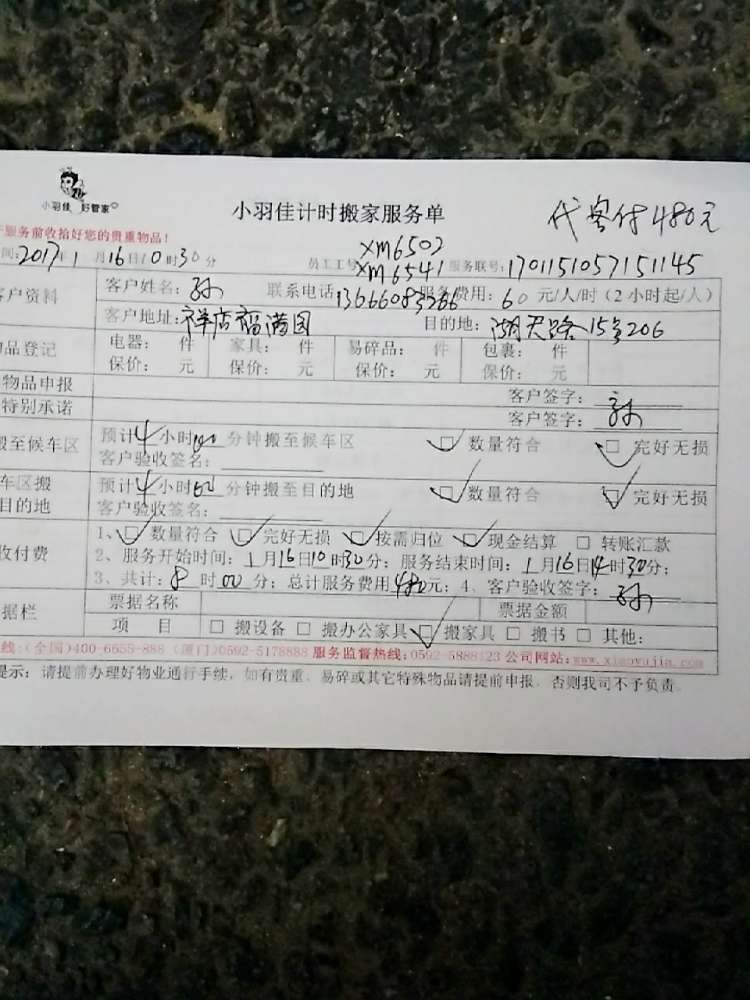 小羽佳 好管家
小羽佳计时搬家服务单
代客付480元
服务前收拾好您的贵重物品!
间:2017年1月16日10时30分 员工工号 xm6502 xm6541 服务联号:1701151057151145
客户资料 客户姓名:孙 联系电话:13666083266 服务费用:60元/人/时(2小时起/人)
客户地址:祥店福满园 目的地:湖天路15号206
品登记 电器: 件 家具: 件 易碎品: 件 包裹: 件
保价: 元 保价: 元 保价: 元 保价: 元
物品申报 客户签字:
特别承诺 客户签字:孙
搬至候车区 预计4小时00分钟搬至候车区 数量符合 完好无损
客户验收签名:
车区搬 预计4小时00分钟搬至目的地 数量符合 完好无损
目的地 客户验收签名:
收付费 1、数量符合 完好无损 按需归位 现金结算 转账汇款
2、服务开始时间:1月16日10时30分;服务结束时间:1月16日14时30分;
3、共计:8时00分;总计服务费用480元;4、客户验收签字:孙
据栏 票据名称 票据金额
项 目 搬设备 搬办公家具 搬家具 搬书 其他:
线:(全国)400-6555-888 (厦门)0592-5178888 服务监督热线:0592-5888123 公司网站:www.xiaoyujia.com
提示:请提前办理好物业通行手续,如有贵重、易碎或其它特殊物品请提前申报,否则我司不予负责。